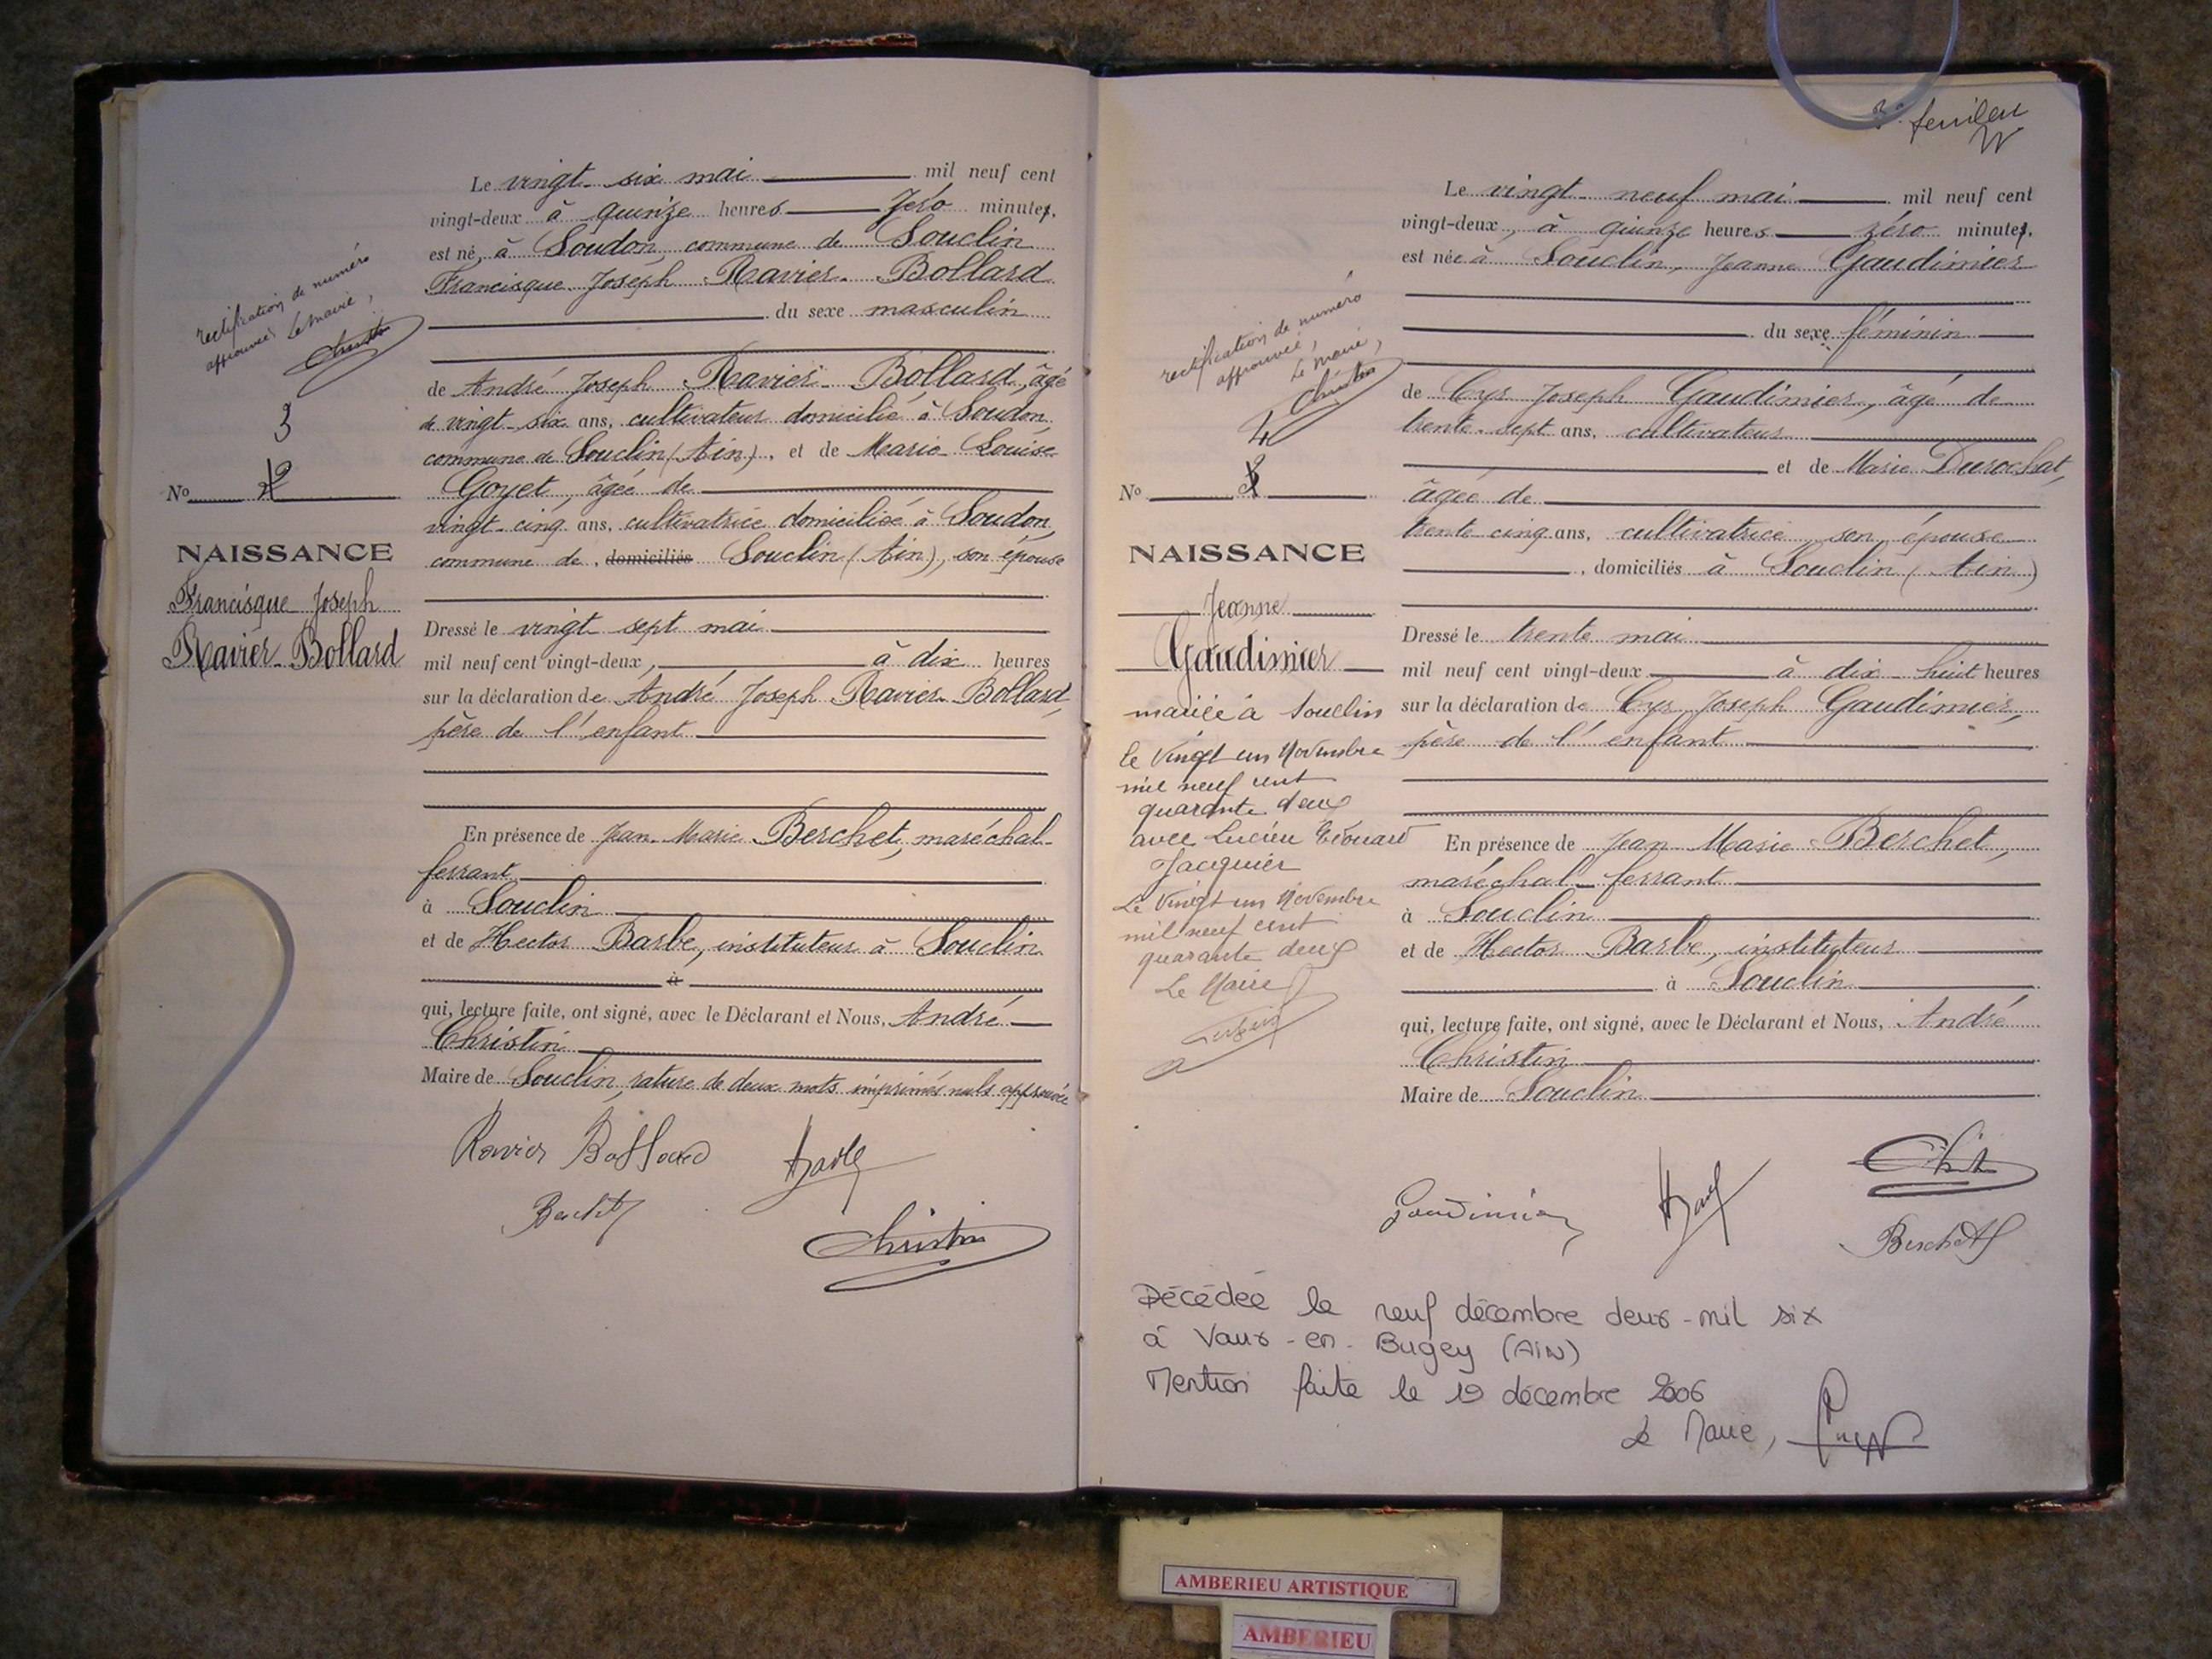 rectification de numéro
approuvée, Le maire,
Christin
3
2
No
NAISSANCE
Francisque Joseph
Ravier-Bollard
Le vingt-six mai mil neuf cent
vingt-deux à quinze heures zéro minutes,
est né, à Soudon, commune de Souclin
Francisque Joseph Ravier-Bollard
du sexe masculin
de André Joseph Ravier-Bollard, âgé
de vingt-six ans, cultivateur domicilié à Soudon
commune de Souclin (Ain), et de Marie Louise
Goyet, âgée de
vingt-cinq ans, cultivatrice domiciliée à Soudon,
commune de, domiciliés Souclin (Ain), son épouse
Dressé le vingt sept mai
mil neuf cent vingt-deux, à dix heures
sur la déclaration de André Joseph Ravier-Bollard,
père de l'enfant
En présence de Jean-Marie Berchet, maréchal-
ferrant
à Souclin
et de Hector Barbe, instituteur à Souclin
à
qui, lecture faite, ont signé, avec le Déclarant et Nous, André
Christin
Maire de Souclin, rature de deux mots imprimés nuls approuvée
Ravier Bollard Barbe
Berchet
Christin
3e feuillet
rectification de numéro
approuvée,
Le maire,
Christin
4
3
No
NAISSANCE
Jeanne
Gaudimier
mariée à Souclin
le vingt un Novembre
mil neuf cent
quarante deux
avec Lucien Edouard
Jacquier
Le vingt un Novembre
mil neuf cent
quarante deux
Le Maire
Le vingt-neuf mai mil neuf cent
vingt-deux, à quinze heures zéro minutes,
est née à Souclin, Jeanne Gaudimier
du sexe féminin
de Cyr Joseph Gaudimier, âgé de
trente-sept ans, cultivateur
et de Marie Durochat,
âgée de
trente cinq ans, cultivatrice, son épouse
, domiciliés à Souclin (Ain)
Dressé le trente mai
mil neuf cent vingt-deux à dix-huit heures
sur la déclaration de Cyr Joseph Gaudimier,
père de l'enfant
En présence de Jean Marie Berchet,
maréchal-ferrant
à Souclin
et de Hector Barbe, instituteur
à Souclin
qui, lecture faite, ont signé, avec le Déclarant et Nous, André
Christin
Maire de Souclin
Gaudimier Barbe Christin
Berchet
Décédée le neuf décembre deux-mil six
à Vaux-en-Bugey (AIN)
Mention faite le 19 décembre 2006
Le Maire,
AMBERIEU ARTISTIQUE
AMBERIEU